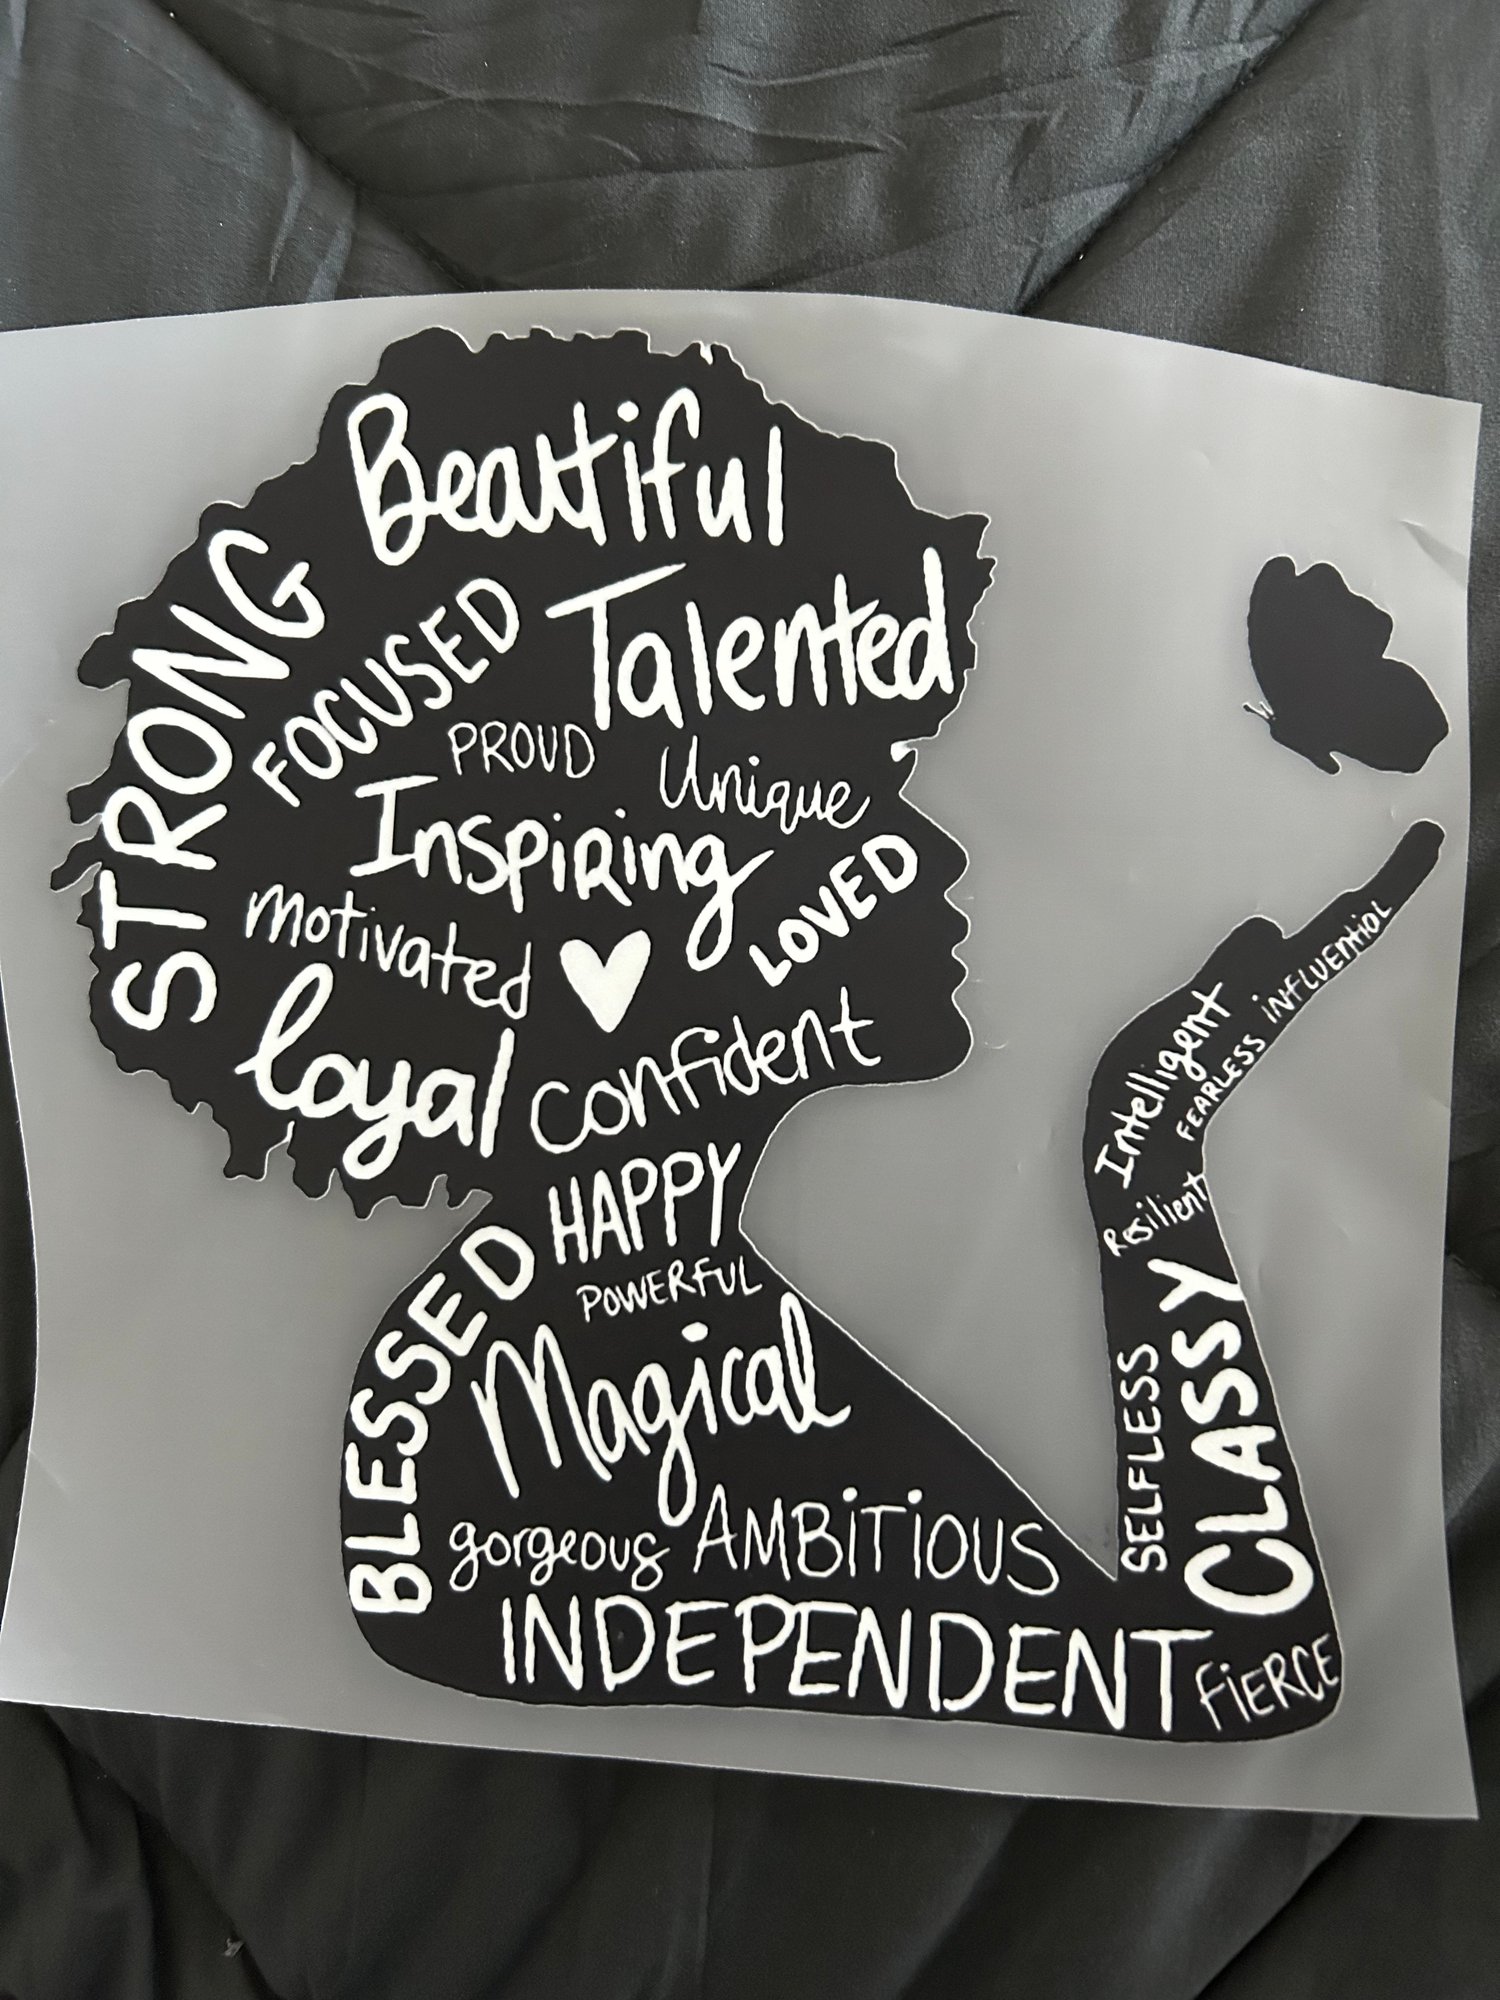 Beautiful
STRONG
FOCUSED
Talented
PROUD
Unique
Inspiring
LOVED
motivated
loyal
confident
HAPPY
POWERFUL
BLESSED
Magical
gorgeous
AMBiTiOUS
INDEPENDENT
FiERCE
CLASSY
SELFLESS
Resilient
Intelligent
FEARLESS
iNFLUENTiAL